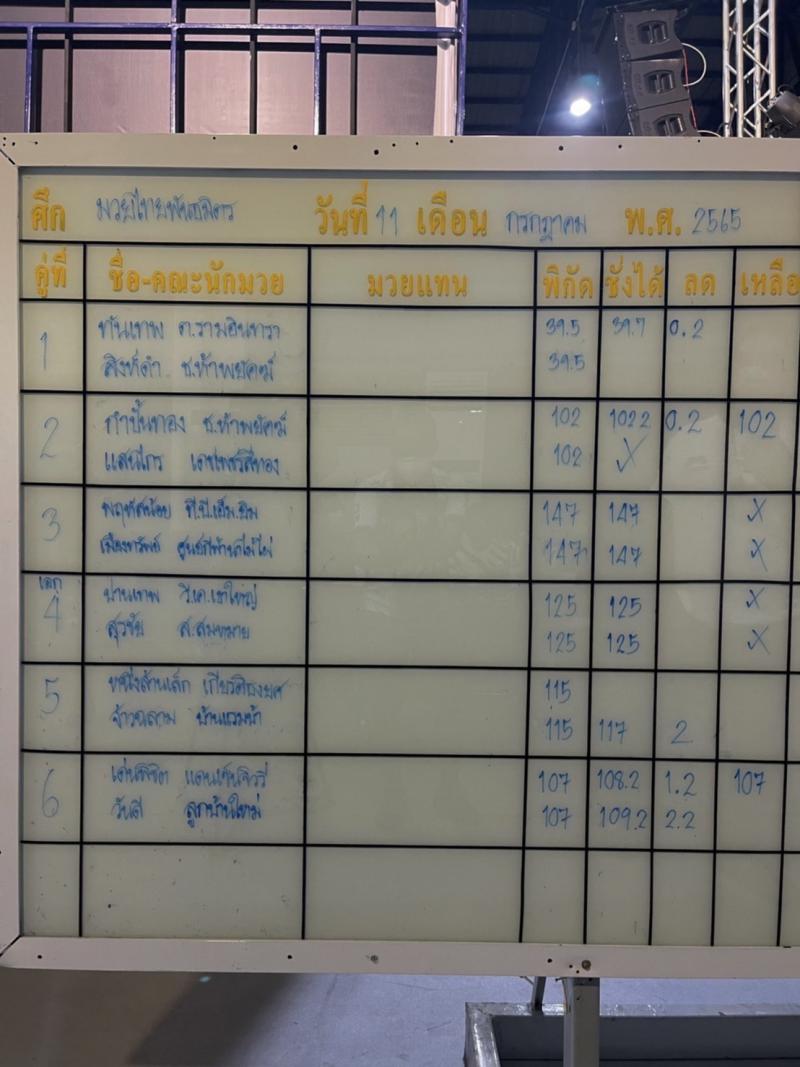 ศึก มวยไทยพันธมิตร วันที่ 11 เดือน กรกฎาคม พ.ศ. 2565
คู่ที่ ชื่อ-คณะนักมวย มวยแทน พิกัด ชั่งได้ ลด เหลือ
1 ทันเทพ ต.รามอินทรา 39.5 39.7 0.2
สิงห์ดำ ช.ห้าพยัคฆ์ 39.5
2 กำปั้นทอง ช.ห้าพยัคฆ์ 102 102.2 0.2 102
แสนไกร เดชเพชรสีทอง 102 X
3 พฤหัสน้อย ที.บี.เอ็ม.ยิม 147 147 X
เมืองทรัพย์ 147 147 X
เอก
4 ปานเทพ วี.เค.เขาใหญ่ 125 125 X
สุวชัย ส.สมหมาย 125 125 X
5 หนึ่งล้านเล็ก เกียรติธงยศ 115
จ้าวฉลาม บ้านแรมน้ำ 115 117 2
6 107 108.2 1.2 107
วันดี ลูกบ้านใหม่ 107 109.2 2.2